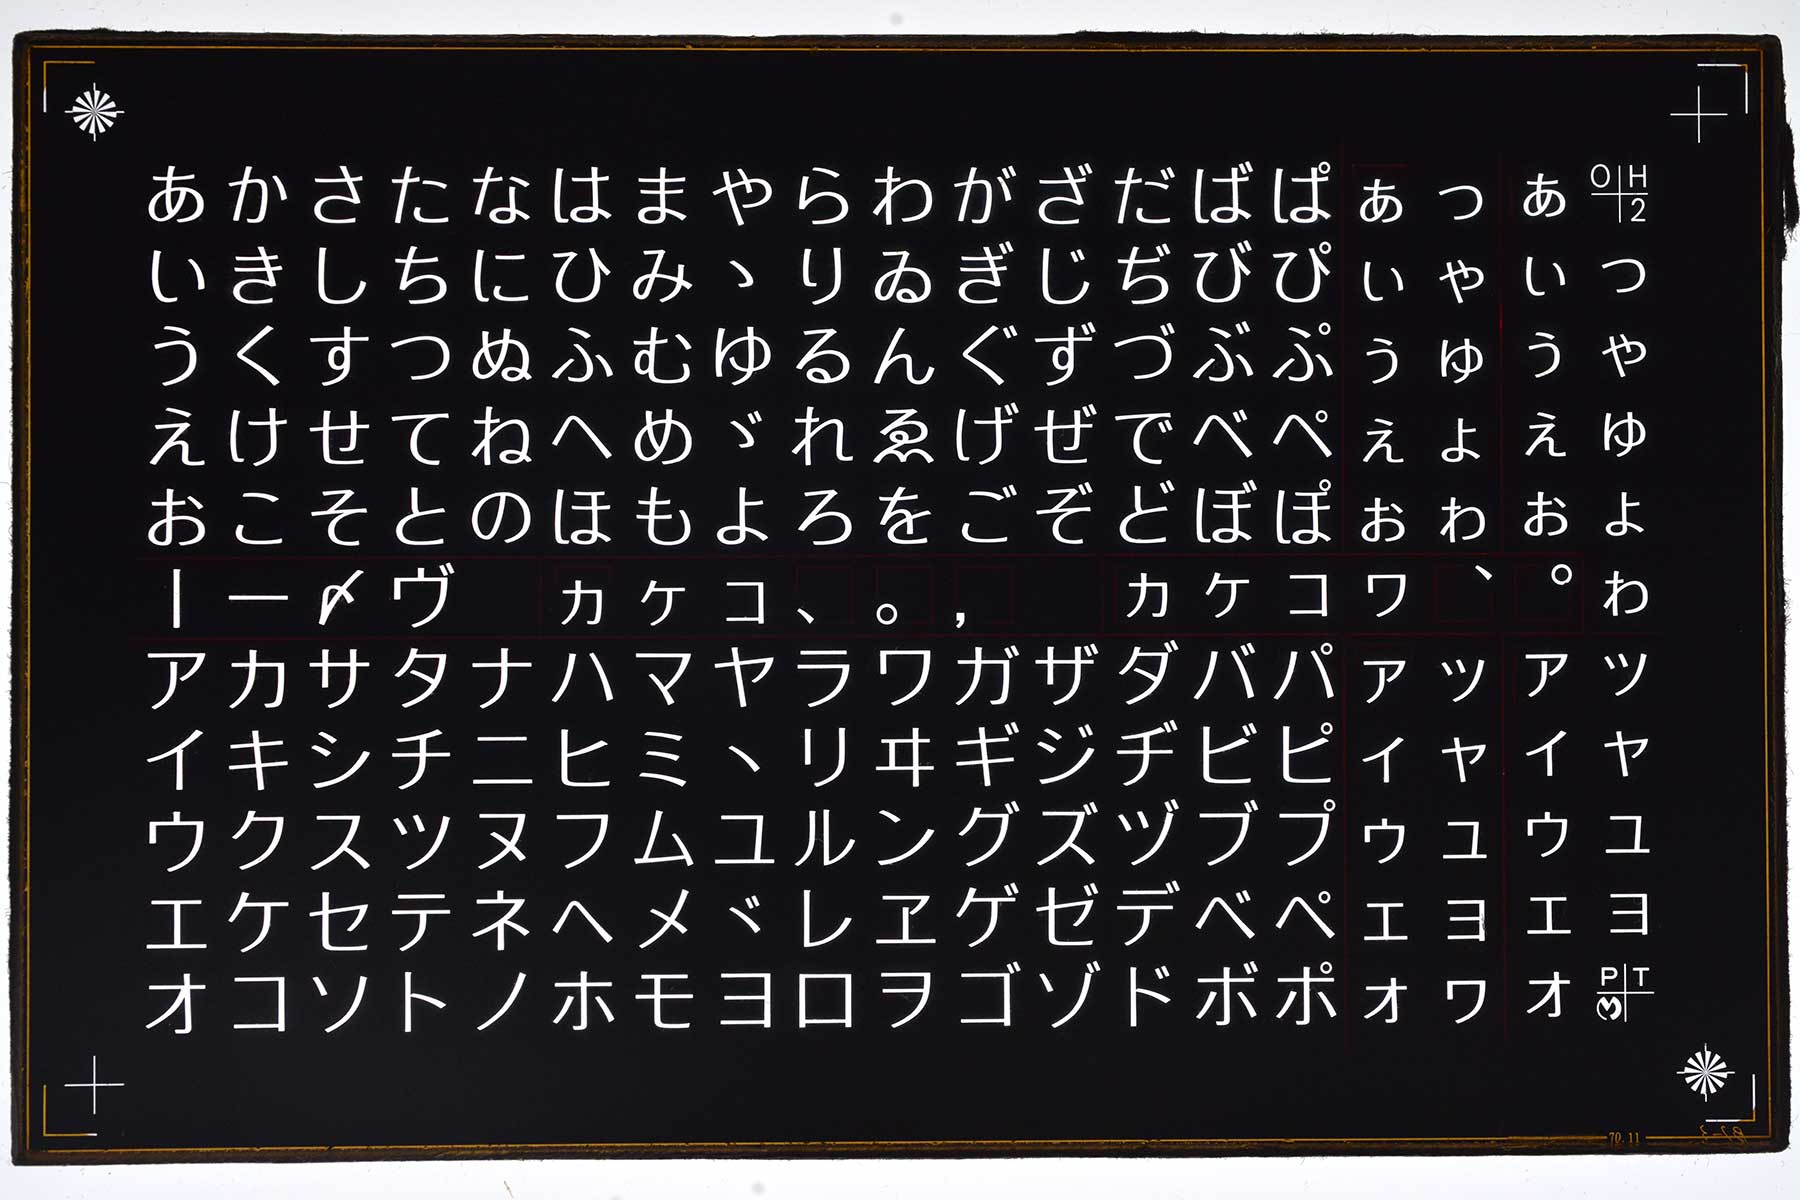 あかさたなはまやらわがざだばぱぁっあ OH2
いきしちにひみゝりゐぎじぢびぴぃゃいっ
うくすつぬふむゆるんぐずづぶぷぅゅうゃ
えけせてねへめゞれゑげぜでべぺぇょえゅ
おこそとのほもよろをごぞどぼぽぉゎおょ
｜ー〆ヴ カケコ、。, カケコワ、。ゎ
アカサタナハマヤラワガザダバパァッアッ
イキシチニヒミヽリヰギジヂビピィャイャ
ウクスツヌフムユルングズヅブプゥュウュ
エケセテネヘメヾレヱゲゼデベペェョエョ
オコソトノホモヨロヲゴゾドボポォヮオ PTM
70.11